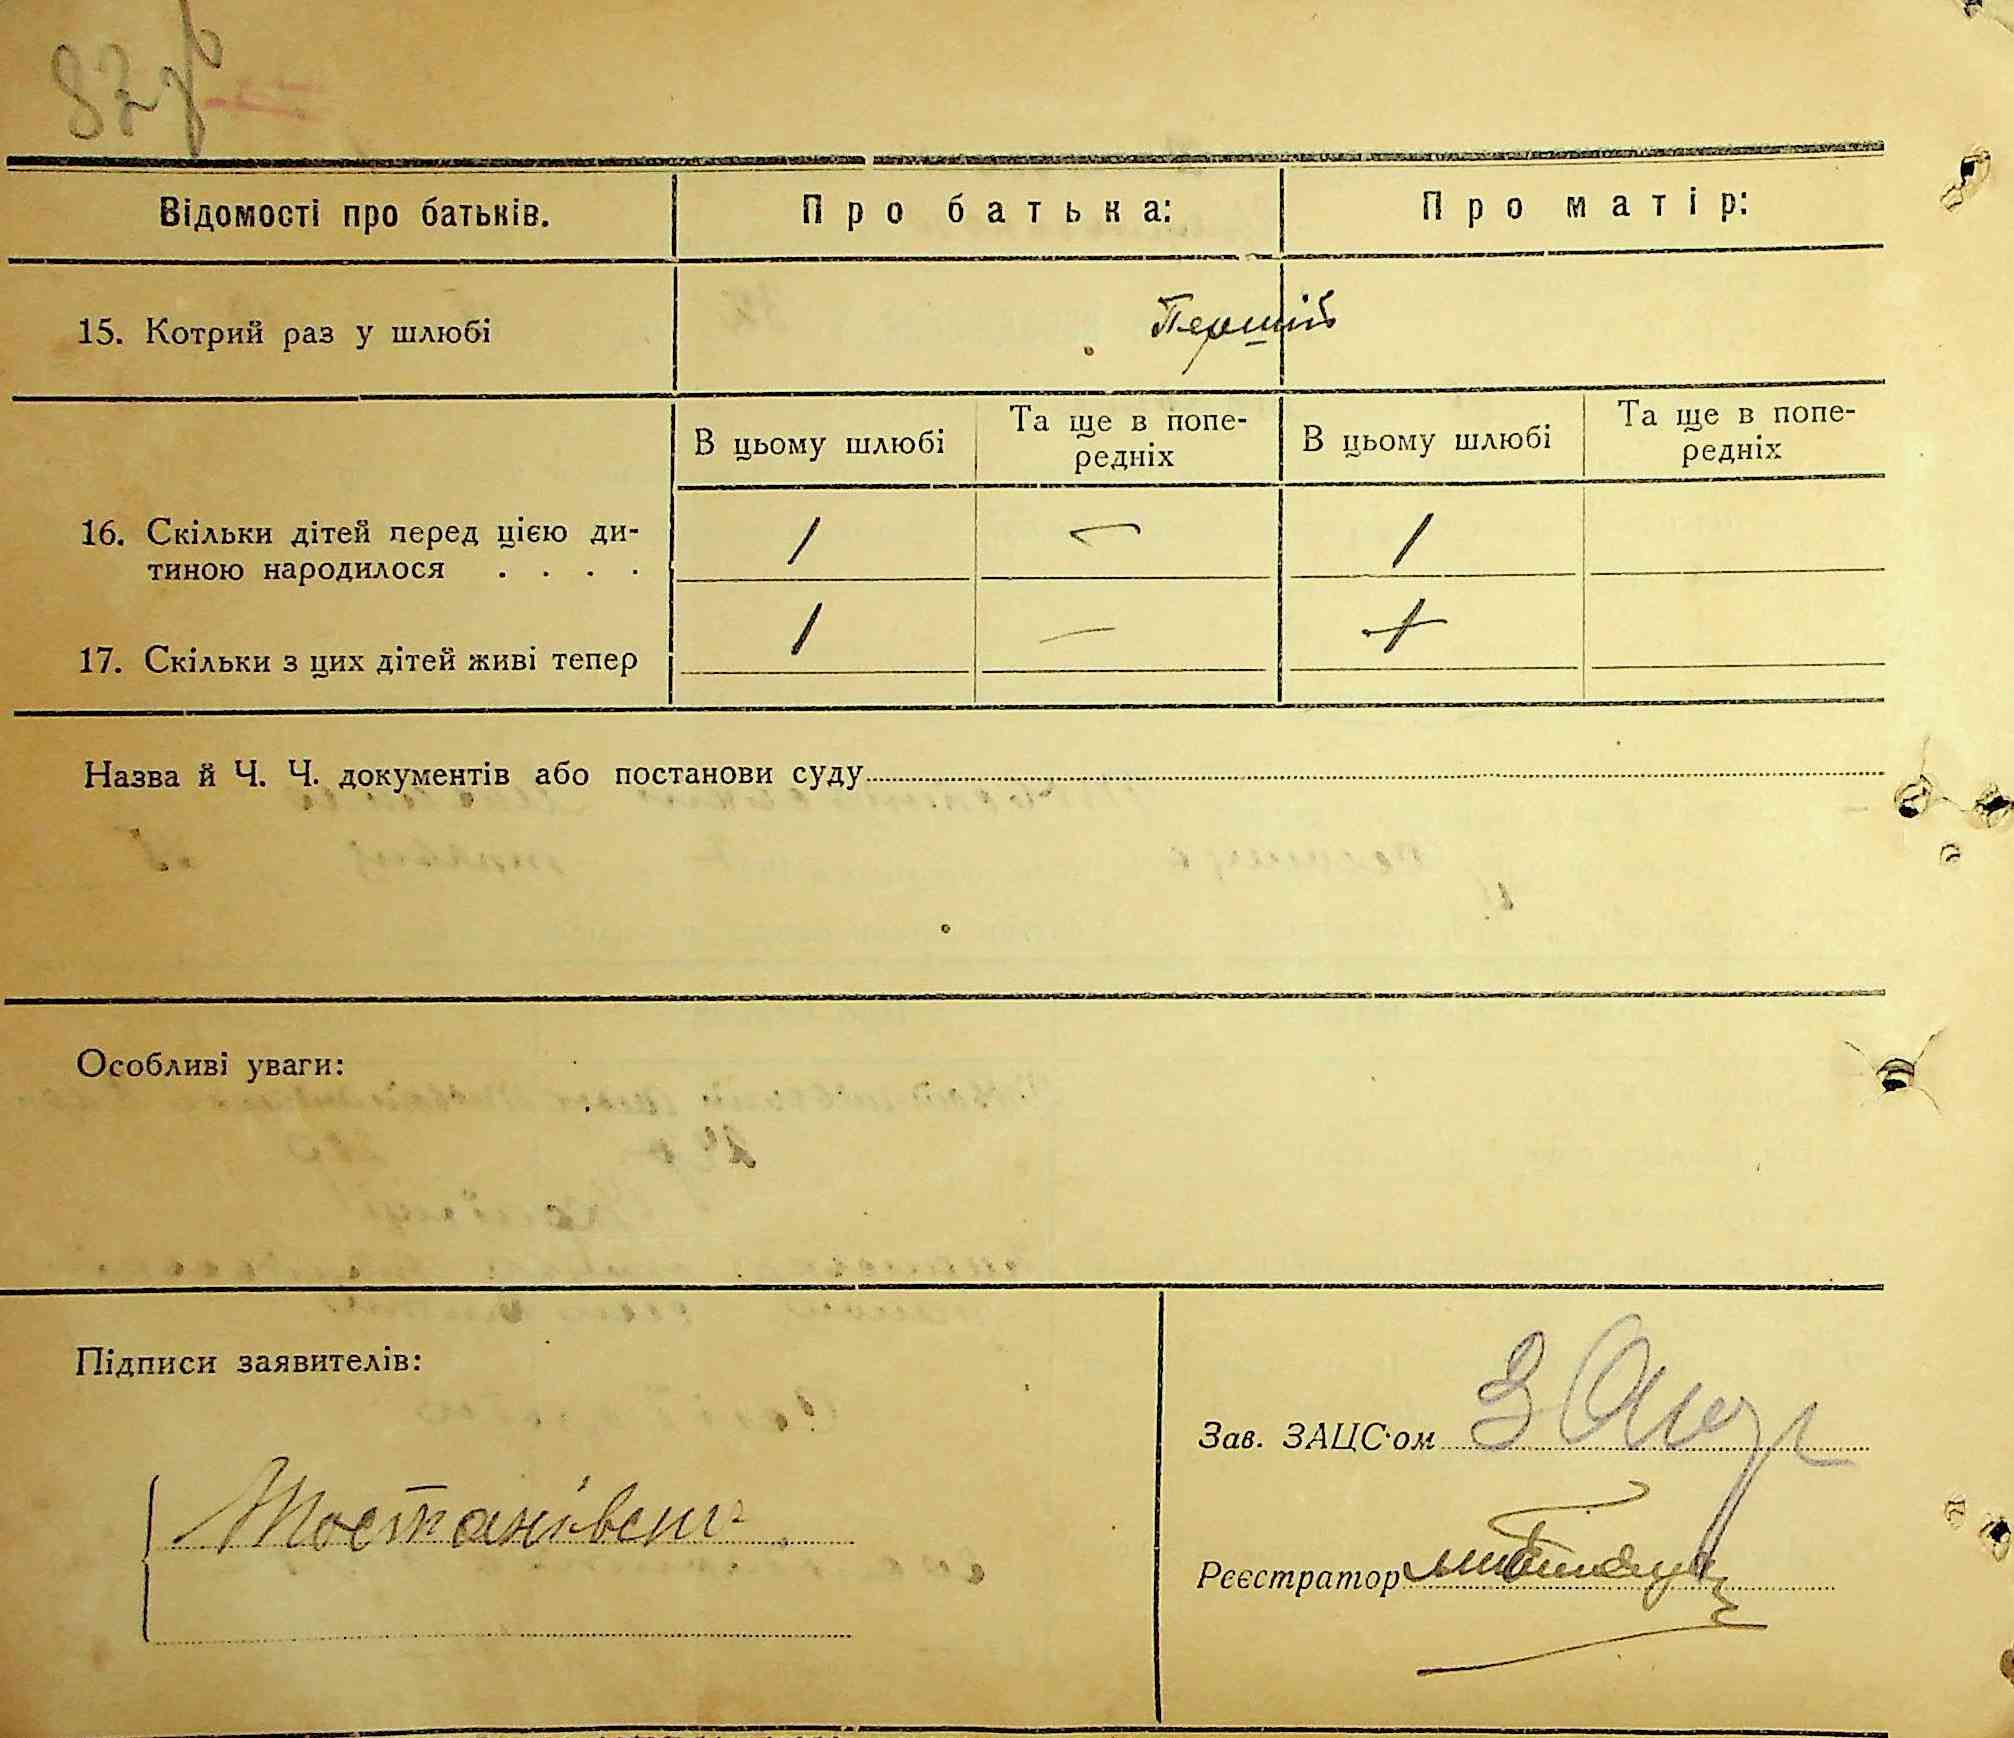 82зв
Відомості про батьків.
Про батька:
Про матір:
15. Котрий раз у шлюбі
Перший
В цьому шлюбі
Та ще в попе-
редніх
В цьому шлюбі
Та ще в попе-
редніх
16. Скільки дітей перед цією ди-
тиною народилося . . . .
1 — 1
17. Скільки з цих дітей живі тепер
1 —
Назва й Ч. Ч. документів або постанови суду
Особливі уваги:
Підписи заявителів:
Зав. ЗАЦС'ом
Реєстратор